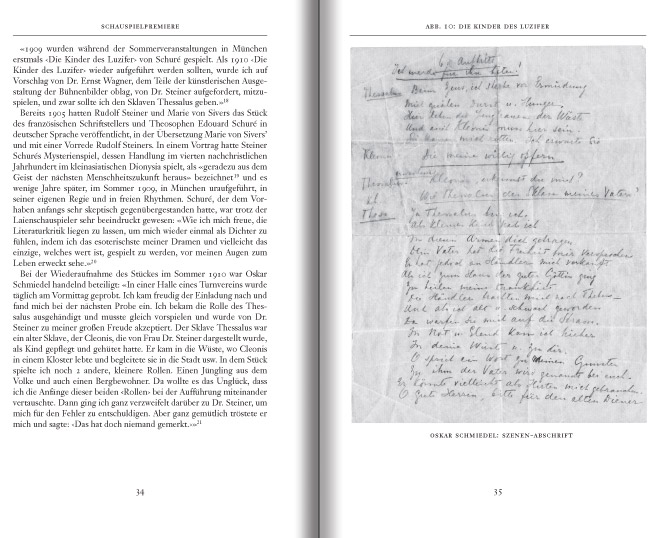 SCHAUSPIELPREMIERE
«1909 wurden während der Sommerveranstaltungen in München
erstmals ‹Die Kinder des Luzifer› von Schuré gespielt. Als 1910 ‹Die
Kinder des Luzifer› wieder aufgeführt werden sollten, wurde ich auf
Vorschlag von Dr. Ernst Wagner, dem Teile der künstlerischen Ausge-
staltung der Bühnenbilder oblag, von Dr. Steiner aufgefordert, mitzu-
spielen, und zwar sollte ich den Sklaven Thessalus geben.»¹⁸
Bereits 1905 hatten Rudolf Steiner und Marie von Sivers das Stück
des französischen Schriftstellers und Theosophen Edouard Schuré in
deutscher Sprache veröffentlicht, in der Übersetzung Marie von Sivers’
und mit einer Vorrede Rudolf Steiners. In einem Vortrag hatte Steiner
Schurés Mysterienspiel, dessen Handlung im vierten nachchristlichen
Jahrhundert im kleinasiatischen Dionysia spielt, als «geradezu aus dem
Geist der nächsten Menschheitszukunft heraus» bezeichnet¹⁹ und es
wenige Jahre später, im Sommer 1909, in München uraufgeführt, in
seiner eigenen Regie und in freien Rhythmen. Schuré, der dem Vor-
haben anfangs sehr skeptisch gegenübergestanden hatte, war trotz der
Laienschauspieler sehr beeindruckt gewesen: «Wie ich mich freue, die
Literaturkritik liegen zu lassen, um mich wieder einmal als Dichter zu
fühlen, indem ich das esoterischste meiner Dramen und vielleicht das
einzige, welches wert ist, gespielt zu werden, vor meinen Augen zum
Leben erweckt sehe.»²⁰
Bei der Wiederaufnahme des Stückes im Sommer 1910 war Oskar
Schmiedel handelnd beteiligt: «In einer Halle eines Turnvereins wurde
täglich am Vormittag geprobt. Ich kam freudig der Einladung nach und
fand mich bei der nächsten Probe ein. Ich bekam die Rolle des Thes-
salus ausgehändigt und musste gleich vorspielen und wurde von Dr.
Steiner zu meiner großen Freude akzeptiert. Der Sklave Thessalus war
ein alter Sklave, der Cleonis, die von Frau Dr. Steiner dargestellt wurde,
als Kind gepflegt und gehütet hatte. Er kam in die Wüste, wo Cleonis
in einem Kloster lebte und begleitete sie in die Stadt usw. In dem Stück
spielte ich noch 2 andere, kleinere Rollen. Einen Jüngling aus dem
Volke und auch einen Bergbewohner. Da wollte es das Unglück, dass
ich die Anfänge dieser beiden ‹Rollen› bei der Aufführung miteinander
vertauschte. Dann ging ich ganz verzweifelt darüber zu Dr. Steiner, um
mich für den Fehler zu entschuldigen. Aber ganz gemütlich tröstete er
mich und sagte: ‹Das hat doch niemand gemerkt.›»²¹
34
ABB. 10: DIE KINDER DES LUZIFER
Ich werde für ihn beten!
Zeus, ich sterbe vor Ermüdung
Mich quälen Durst u. Hunger.
und Cleonis muss hier sein
Die meine willig opfern
Kleonis, erkennst du mich?
Thessalus den Sklaven meines Vaters?
Ja Thessalus bin ich,
In diesen Armen dich getragen
Dein Vater hat die Freiheit mir versprochen
Und als ich alt u. schwach geworden
Da warfen sie mich auf die Strasse.
In Not u. Elend kam ich hieher
O sprich ein Wort zu meinen Gunsten
Er könnte vielleicht als Hirten mich gebrauchen.
für den alten Diener
OSKAR SCHMIEDEL: SZENEN-ABSCHRIFT
35